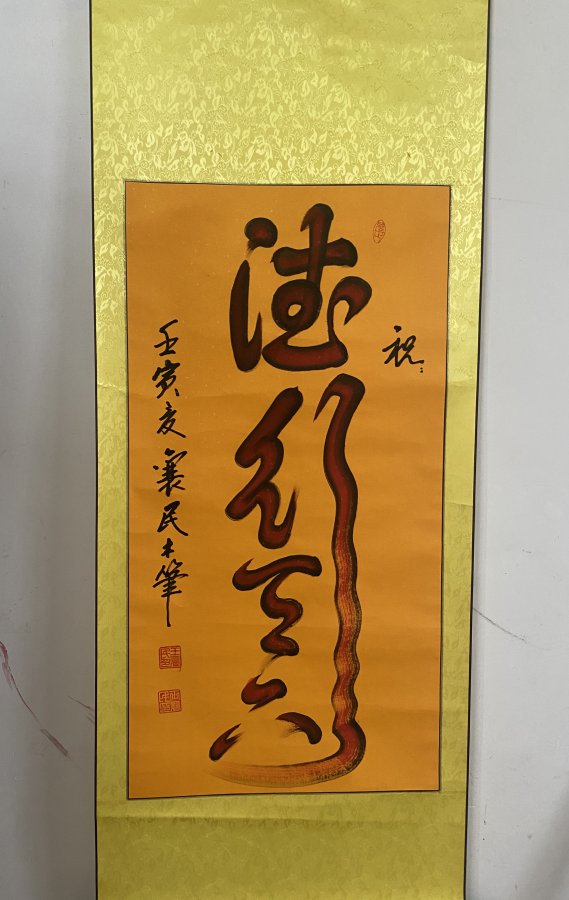 祝：
德行天下
壬寅夏襄民木筆